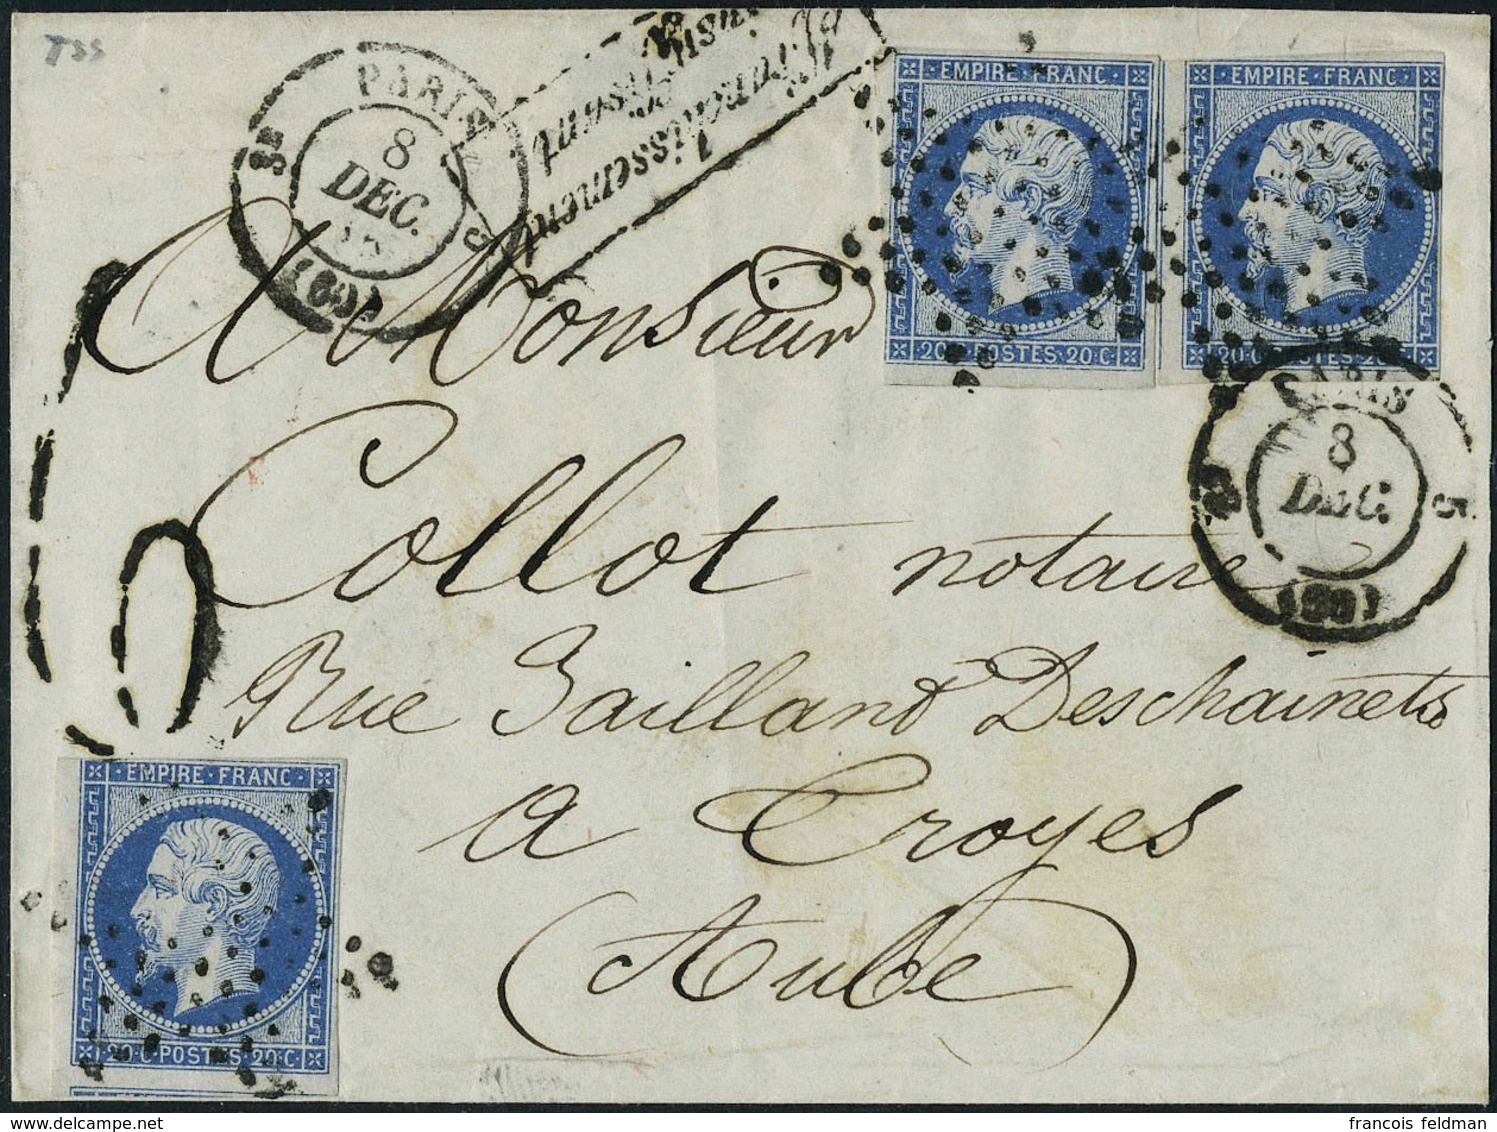 T35
Affranchissement
insuffisant
PARIS
3e
8
DEC.
(60)
EMPIRE · FRANC
20 · C · POSTES · 20 · C
EMPIRE · FRANC
20 · C · POSTES · 20 · C
A Monsieur
PARIS
8
DEC.
5
(60)
Collot notaire
Rue Gailland Deschainets
a Troyes
(Aube)
EMPIRE · FRANC
20 · C · POSTES · 20 · C
francois feldman